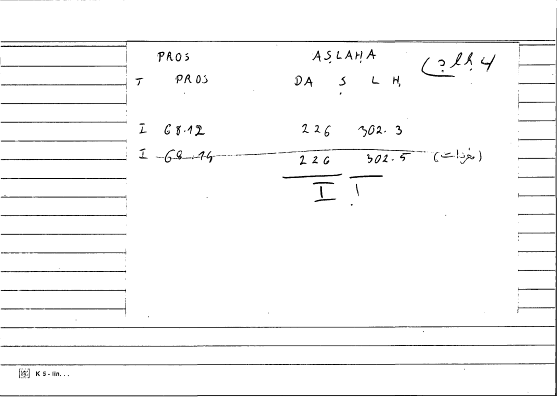 PROS ASLAHA
T PROS DA S L H
I 68.12 226 302.3
I 68.14 226 302.5
I I
K 5 - lin...